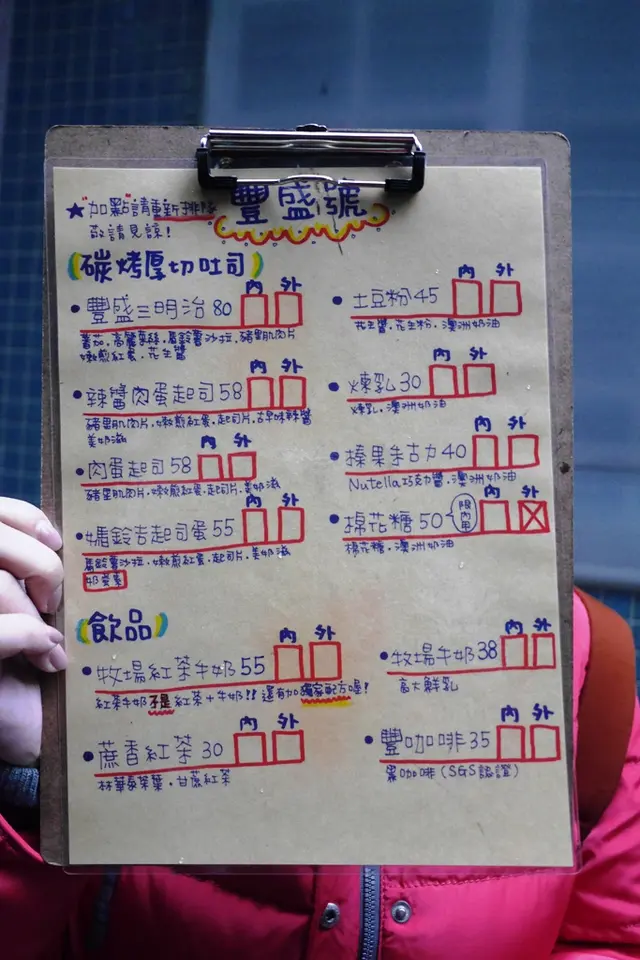 豐盛號
★"加點"請重新排隊
敬請見諒!
碳烤厚切吐司
內 外
豐盛三明治 80
番茄.高麗菜絲.馬鈴薯沙拉.豬里肌肉片
嫩煎紅蛋.花生醬
內 外
辣醬肉蛋起司 58
豬里肌肉片.嫩煎紅蛋.起司片.古早味辣醬
美奶滋
內 外
肉蛋起司 58
豬里肌肉片.嫩煎紅蛋.起司片.美奶滋
內 外
媽鈴吉起司蛋 55
馬鈴薯沙拉.嫩煎紅蛋.起司片.美奶滋
奶蛋素
內 外
土豆粉 45
花生醬.花生粉.澳洲奶油
內 外
煉乳 30
煉乳.澳洲奶油
內 外
榛果手古力 40
Nutella巧克力醬.澳洲奶油
內 外
棉花糖 50 限內用
棉花糖.澳洲奶油
飲品
內 外
牧場紅茶牛奶 55
紅茶牛奶不是紅茶+牛奶!! 還有加獨家配方喔!
內 外
蔗香紅茶 30
林華泰茶葉.甘蔗紅茶
內 外
牧場牛奶 38
高大鮮乳
內 外
豐咖啡 35
黑咖啡(SGS認證)